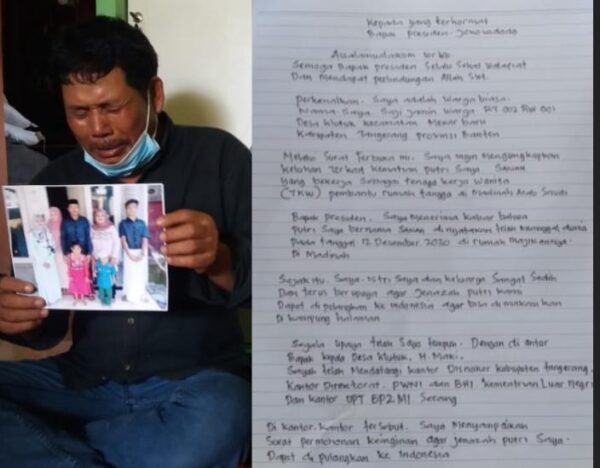 Kepada yang terhormat
Bapak presiden Joko widodo
Assalamualaikum wr wb.
Semoga Bapak presiden Selalu Sehat walafiat
Dan mendapat perlindungan Allah SWT.
Perkenalkan. Saya adalah warga biasa.
Nama Saya. Saji Jamin warga. RT 002 RW 001
Desa Klutuk kecamatan Mekar baru
Kabupaten Tangerang provinsi Banten
Melalui Surat Terbuka ini. Saya ingin mengungkapkan
Keluhan Terkait Kematian putri Saya Sanian
Yang bekerja Sebagai tenaga kerja wanita
(TKW) pembantu rumah tangga di Madinah Arab Saudi
Bapak presiden. Saya menerima kabar bahwa
putri Saya bernama Sanian dinyatakan telah meninggal dunia
pada tanggal 12 Desember 2020 di rumah majikannya.
Di Madinah
Sejak itu. Saya. istri Saya dan keluarga Sangat Sedih
Dan terus berupaya agar Jenazah putri kami
Dapat di pulangkan ke Indonesia agar bisa di makamkan
Di kampung halaman
Segala upaya telah Saya tempuh. Dengan di antar
Bapak kepala Desa Klutuk. H. Maki.
Sayah telah Mendatangi kantor Disnaker kabupaten tangerang,
Kantor Direktorat. PWNI dan BHI. Kementrian Luar Negri
Dan Kantor UPT BP2MI Serang
Di kantor-kantor tersebut. Saya Menyampaikan
Surat permohonan keinginan agar jenazah putri Saya.
Dapat di pulangkan ke Indonesia